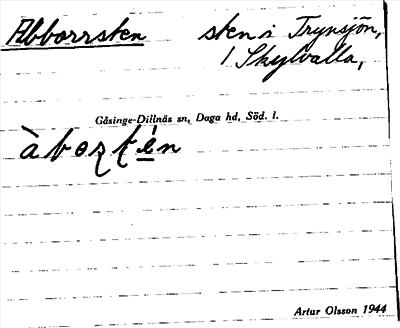 Abborrsten sten i Trynsjön,
1 Skylvalla,
Gåsinge-Dillnäs sn, Daga hd, Söd. l.
Artur Olsson 1944